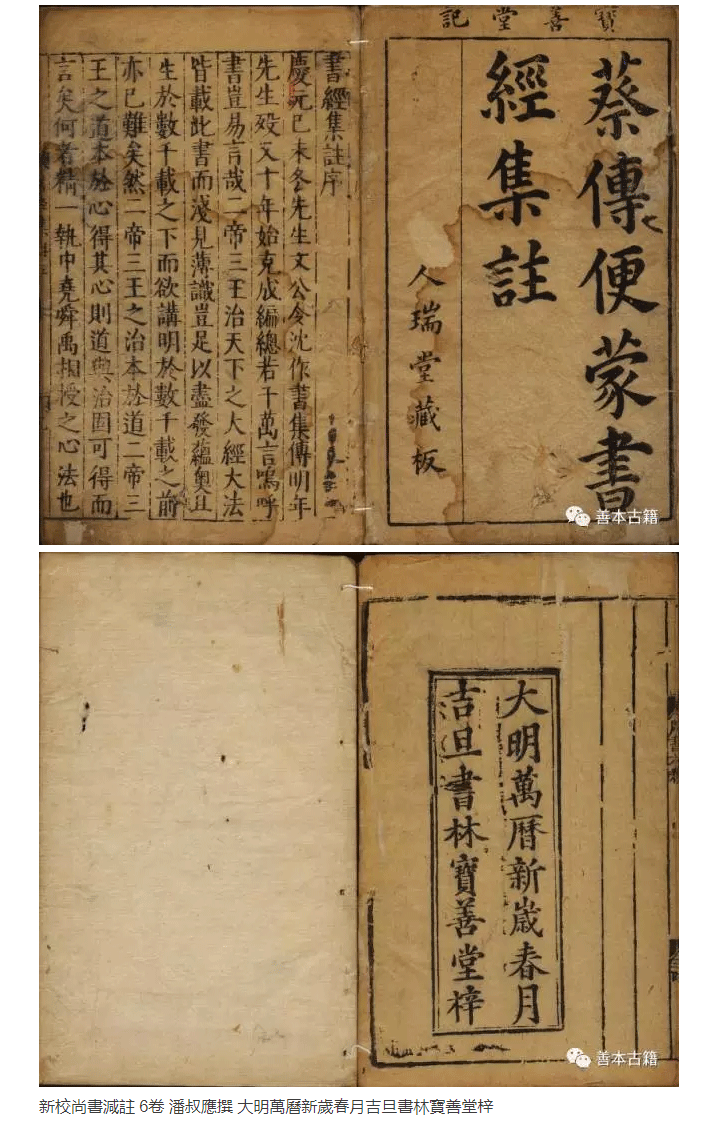 寶善堂記
蔡傳便蒙書
經集註
人瑞堂藏板
書經集註序
慶元己未冬先生文公令沈作書集傳明年
先生歿又十年始克成編總若干萬言嗚呼
書豈易言哉二帝三王治天下之大經大法
皆載此書而淺見薄識豈足以盡發蘊奧且
生於數千載之下而欲講明於數千載之前
亦已難矣然二帝三王之治本於道二帝三
王之道本於心得其心則道與治固可得而
言矣何者精一執中堯舜禹相授之心法也
善本古籍
大明萬曆新歲春月
吉旦書林寶善堂梓
善本古籍
新校尚書減註 6卷 潘叔應撰 大明萬曆新歲春月吉旦書林寶善堂梓